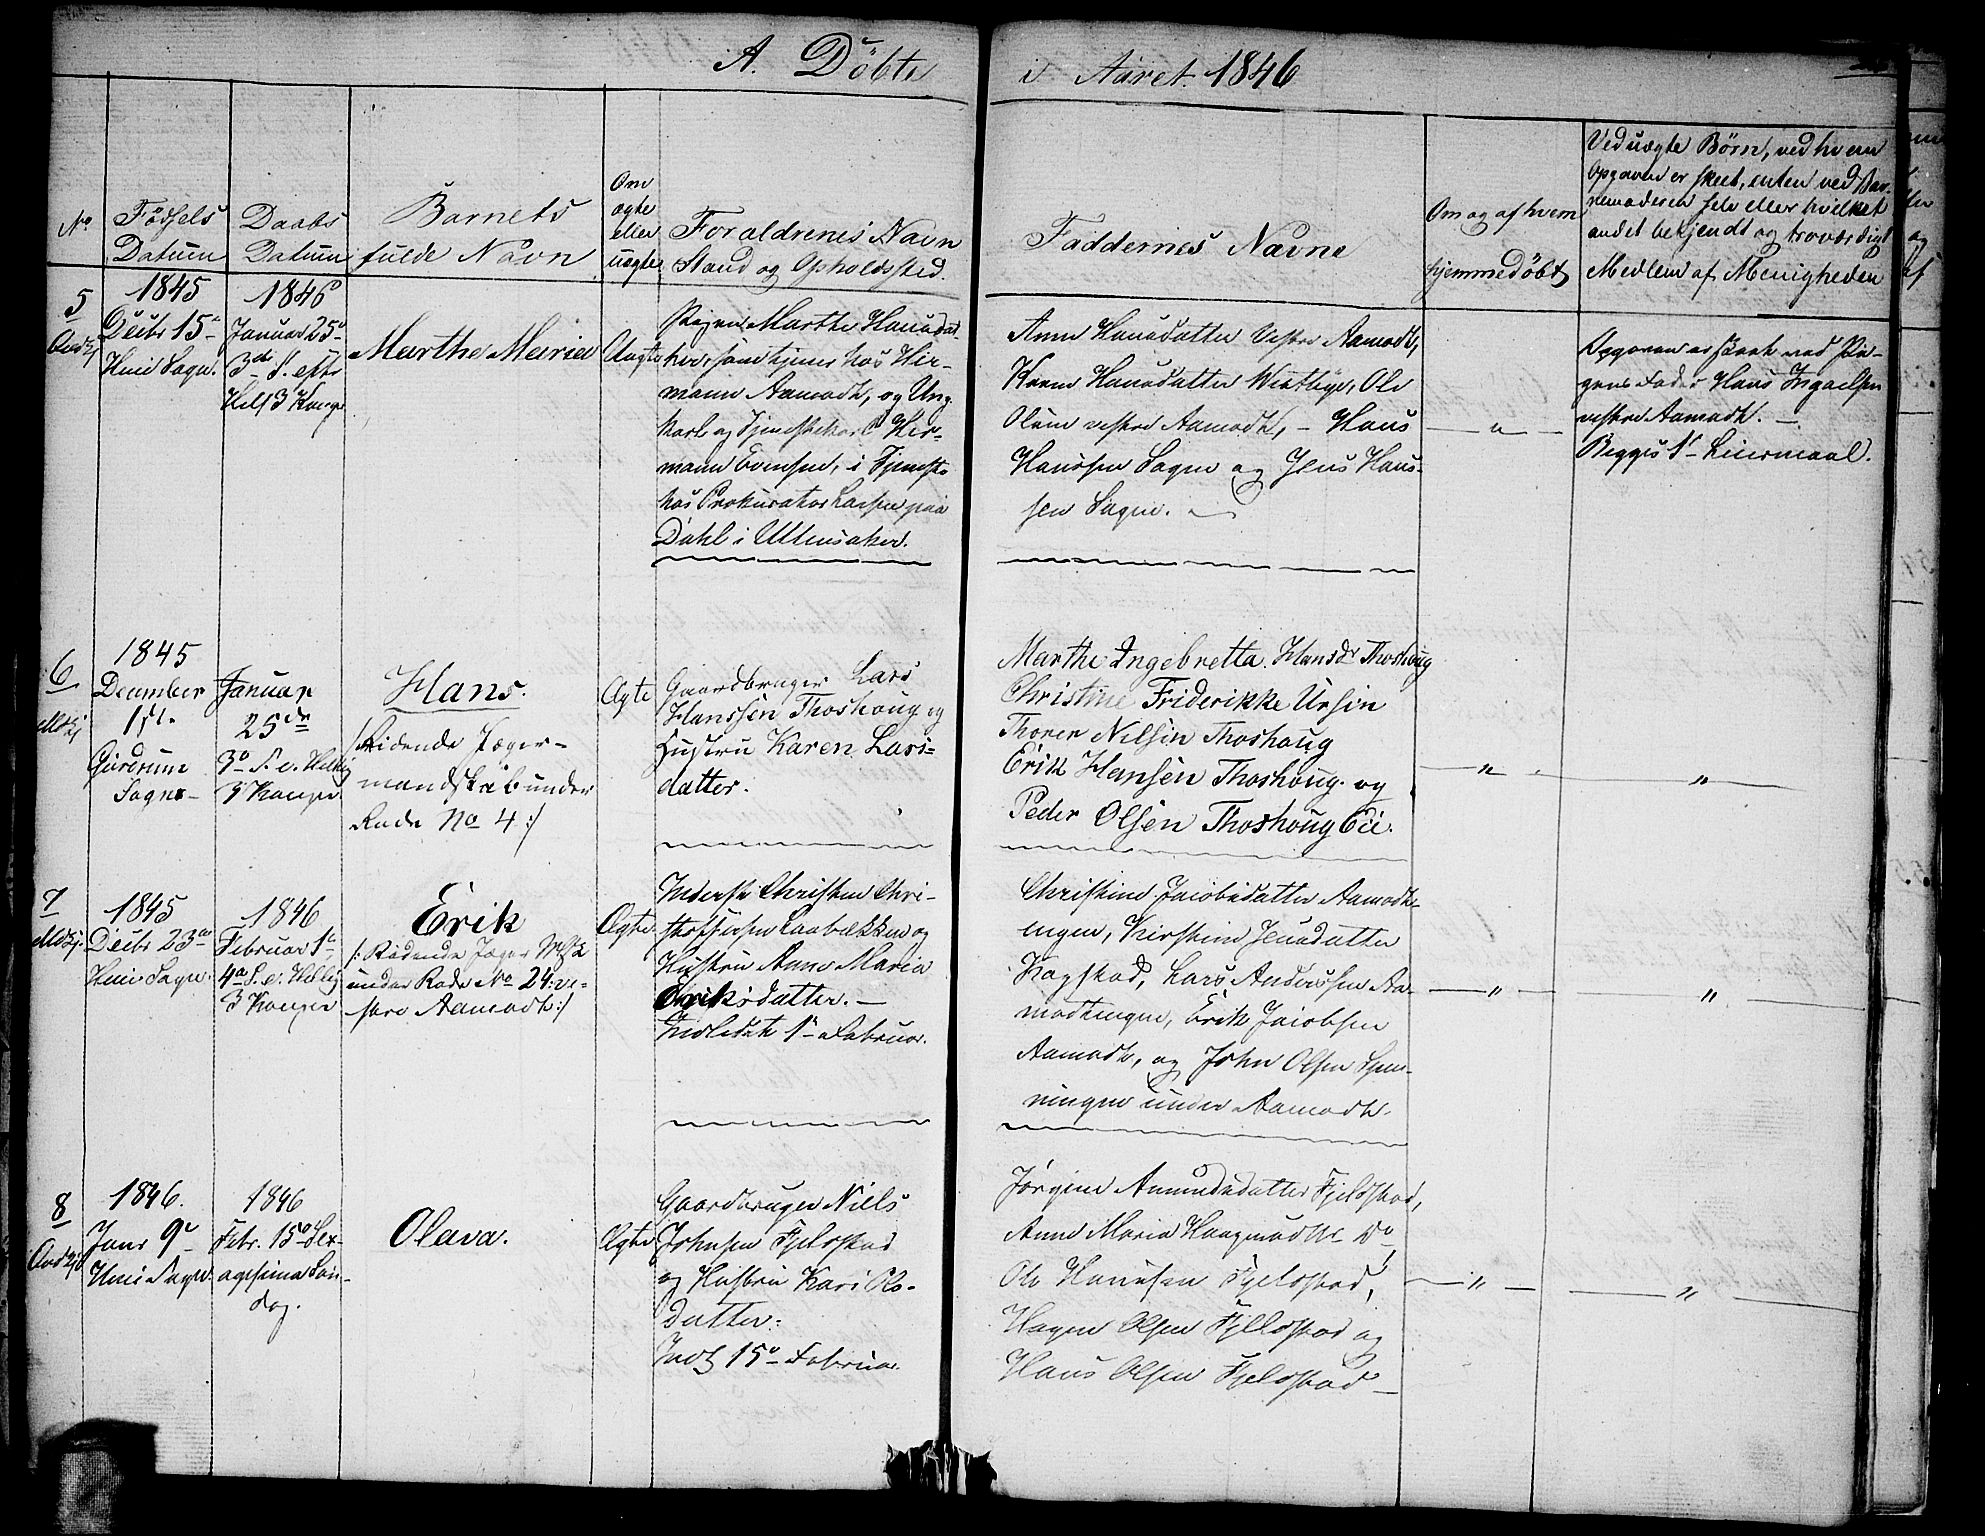 A. Döbte i Aaret 1846
No
Födsels
Datum
Daabs
Datum
Barnets
fulde Navn
Om
ægte
eller
uægte
Foraldrenes Navn
Stand og Opholdssted.
Faddernes Navne
Om og af hvem
hjemmedöbt
Ved uægte Börn, ved hvem
Opgaven er skeet, enten ved Bar-
nemoderen selv eller hvilket
andet bekjendt og troværdigt
Medlem af Menigheden
5
1845
Decbr 15de
Heni Sogn.
1846
Januar 25de
3die S. efter
Hell 3 Konger
Marthe Maria
Uægte
Pigen Marthe Hansdat-
ter, som tjener hos Her-
mann Aamodt, og Ung-
karl og Tjenestekarl Her-
mann Evensen, i Tjeneste
hos Prokurator Larsen paa
Dahl i Ullensaker.
Anne Hansdatter Vestre Aamodt,
Karen Hansdatter
Olsen vestre Aamodt, - Hans
Hanssen Sogn og Jens Hans-
sen Sogn.
"
Opgaven er skeet ved Pi-
gens Fader Hans
vestre Aamodt. -
Begges 1ste Leiermaal.
6
1845
December
1ste
Gjerdrum
Sogn-
Januar
25de
3die S. e. Hellig
3 Konger
Hans.
/: Ridende Jæger-
mandskab under
Rode No 4 :/
Ægte
Gaardbruger Lars
Hanssen Thoshoug og
Hustru Karen Lars-
datter.
Marthe Ingebretta. Hansdr Thoshoug
Christine Friderikke Ursin
Thorer Nilsen Thoshoug
Erik Hansen Thoshoug. og
Peder Olsen Thoshoug Eie.
" "
7
1845
Decbr 23de
Heni Sogn.
1846
Februar 1ste
4de S. e. Hellig
3 Konger
Erik
/: Ridende Jæger Mdsk
under Rode No 24: ve-
stre Aamodt :/
Ægte
Inderst Christen Chri-
stoffersen Laabækken og
Hustru Anne Maria
Eriksdatter. -
Indledet 1ste Februar.
Christine Jacobsdatter Aamodt-
engen, Kirstine Jensdatter
Kogstad, Lars Anderssen Aa-
modtengen, Erik Jacobsen
Aamodt, og John Olsen
ningen under Aamodt.
" "
8
1846.
Janr 9de
Heni Sogn.
1846
Febr. 15de Sex-
agesima Søn-
dag.
Olava.
Ægte
Gaardbruger Niels
Johnsen Fjeldstad
og Hustru Kari Ols-
datter.
Indl 15de Februar.
Jörgine Amundsdatter Fjeldstad,
Anne Maria Haagensdttr Do
Ole Hanssen Fjeldstad,
Hagen Olsen Fjeldstad og
Hans Olsen Fjeldstad -
" "